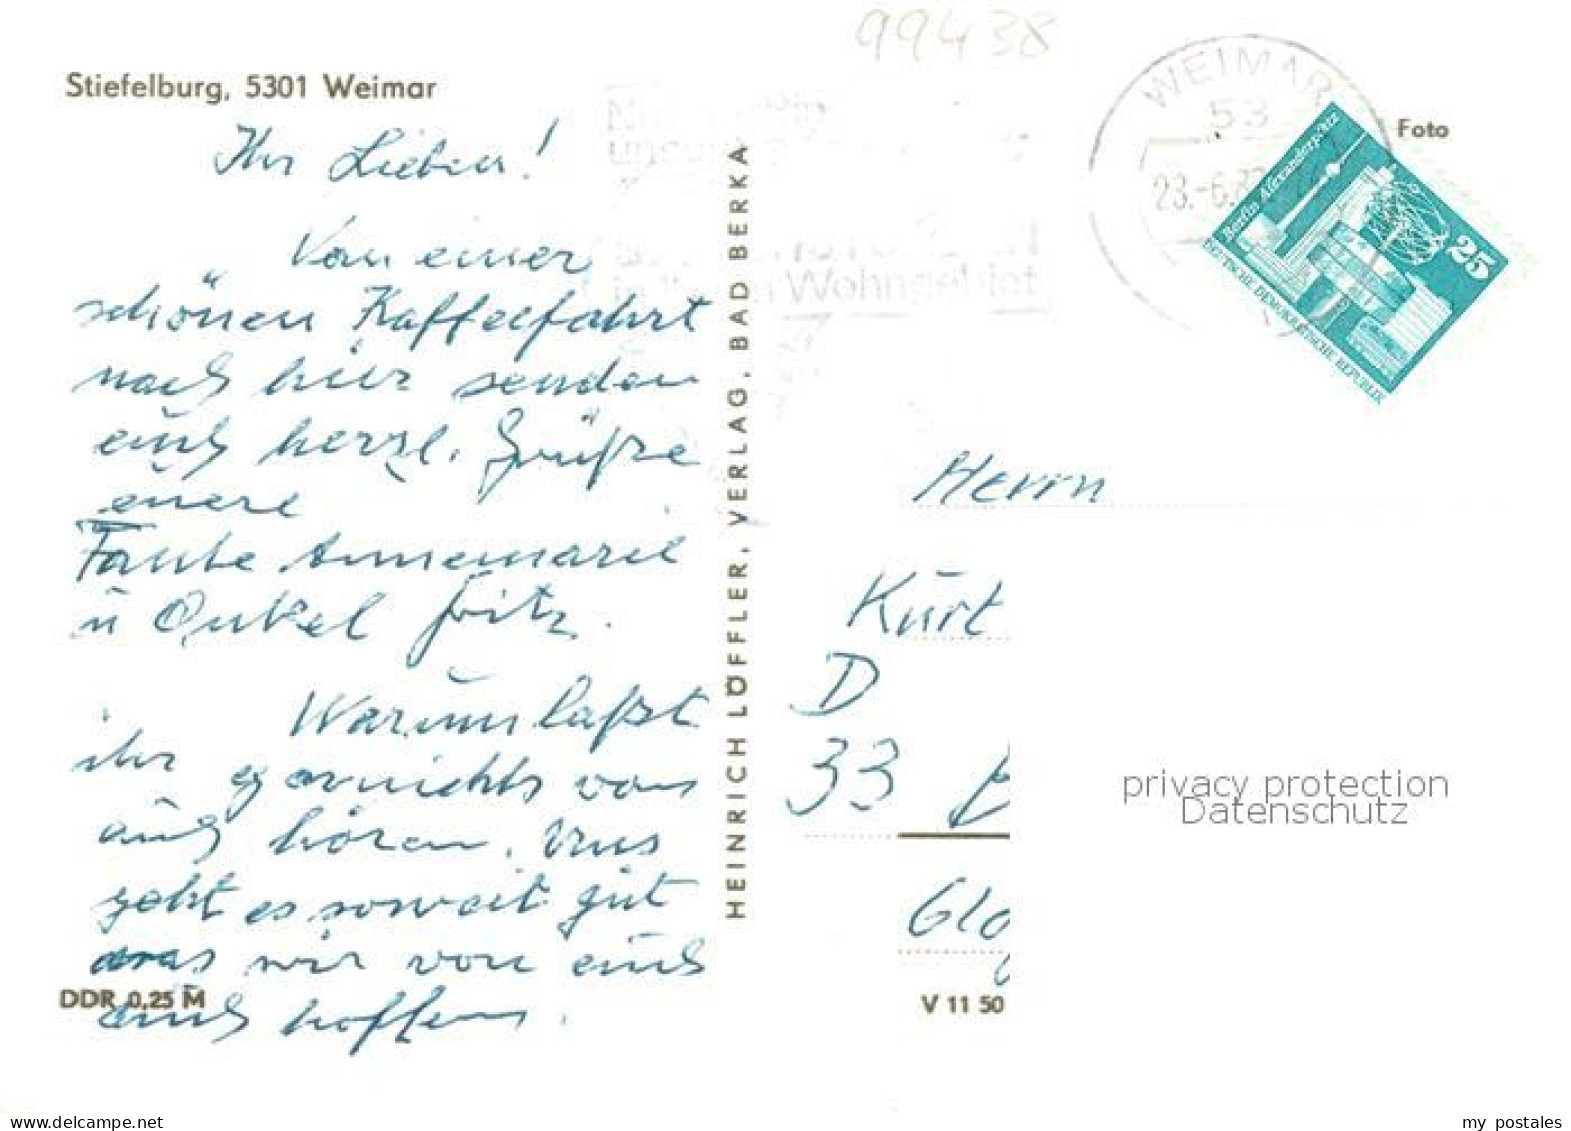 99438
Stiefelburg, 5301 Weimar
Ihr Lieben!
Von einer
schönen Kaffeefahrt
nach hier senden
euch herzl. Grüße
euere
Tante Annemarie
u Onkel Fritz.
Warum laßt
ihr garnichts von
euch hören. Uns
geht es soweit gut
was wir von euch
auch hoffen.
DDR 0,25 M
HEINRICH LÖFFLER, VERLAG, BAD BERKA
V 11 50
WEIMAR
53
23.-6.8
Wohngebiet
Foto
Berlin Alexanderplatz
25
DEUTSCHE DEMOKRATISCHE REPUBLIK
Herrn
Kurt
D
33
Glo
privacy protection
Datenschutz
my postales